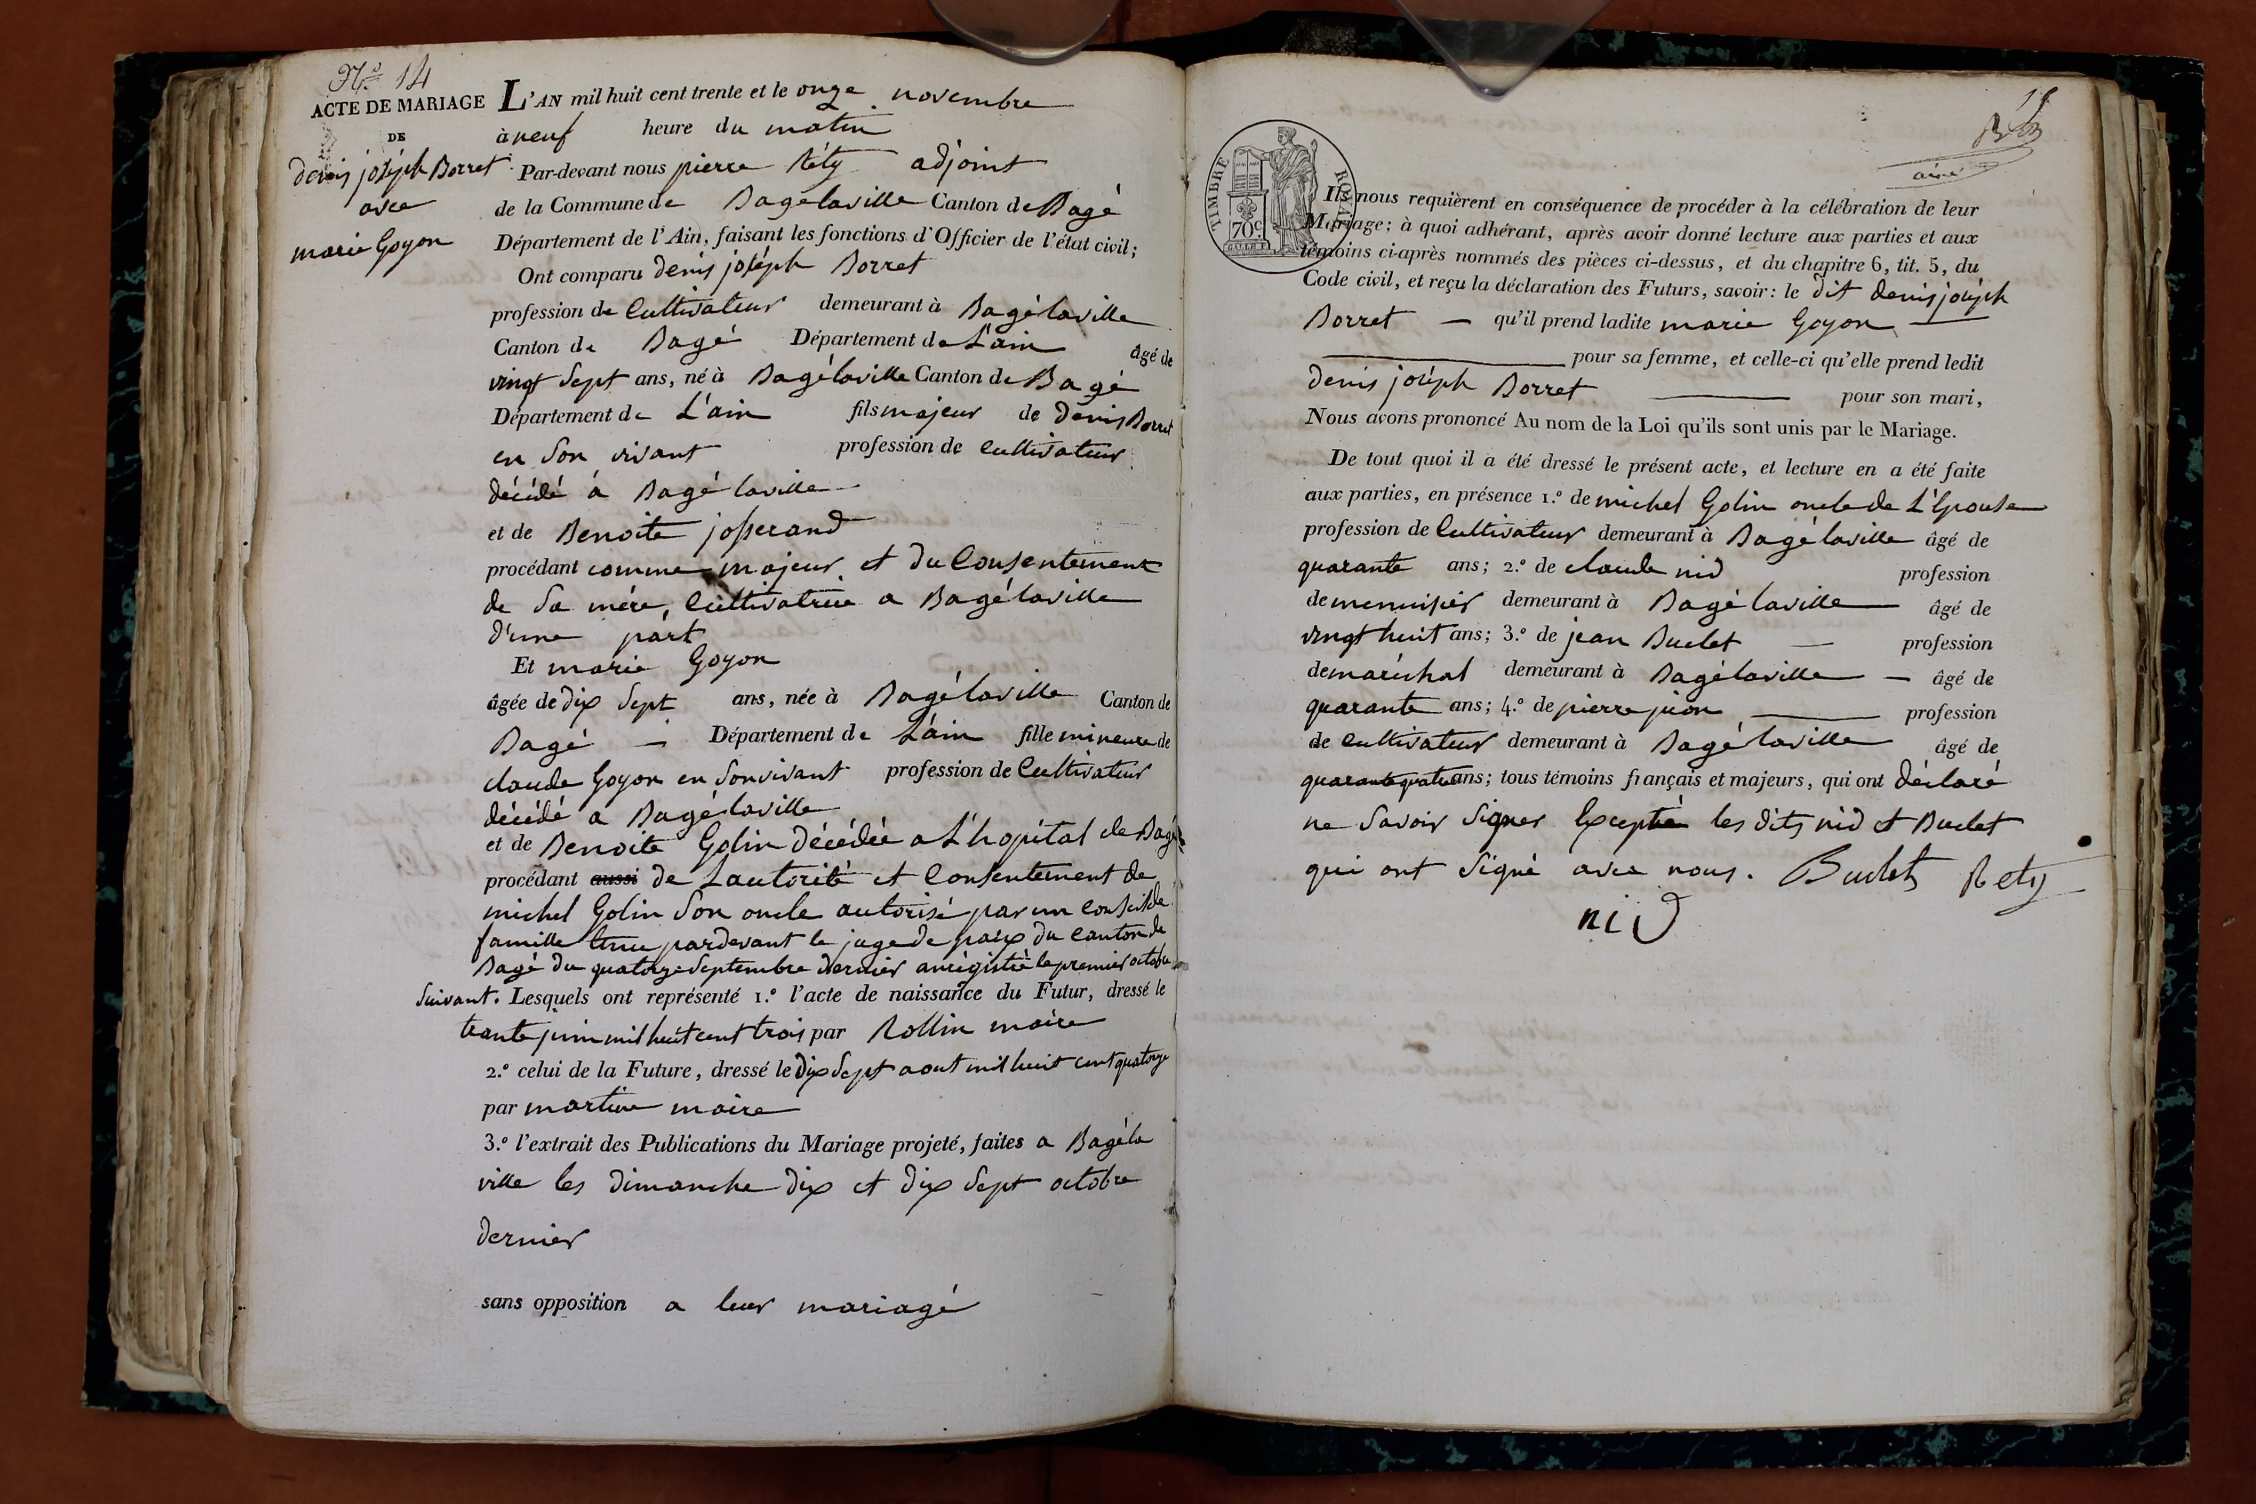 N.º 14
ACTE DE MARIAGE
DE
denis joséph Borret
avec
marie Goyon
L'AN mil huit cent trente et le onze novembre
à neuf heure du matin
Par-devant nous pierre Réty adjoint
de la Commune de Bagélaville Canton de Bagé
Département de l'Ain, faisant les fonctions d'Officier de l'état civil;
Ont comparu denis joséph Borret
profession de Cultivateur demeurant à Bagélaville
Canton de Bagé Département de L'ain âgé de
vingt Sept ans, né à Bagélaville Canton de Bagé
Département de L'ain fils majeur de denis Borret
en Son vivant profession de Cultivateur
décédé à Bagélaville
et de Benoite josserand
procédant comme majeur et du Consentement
de Sa mére, Cultivatrice a Bagélaville
d'une part
Et marie Goyon
âgée de dix Sept ans, née à Bagélaville Canton de
Bagé — Département de L'ain fille mineure de
claude Goyon en Sonvivant profession de Cultivateur
décédé a Bagélaville
et de Benoite Golin décédée a L'hopital de Bagé
procédant aussi de Lautorité et Consentement de
michel Golin Son oncle autorisé par un Conseil de
famille tenu pardevant le juge de paix du Canton de
Bagé du quatorze Septembre dernier anrégistré le premier octobre
Suivant. Lesquels ont représenté 1.º l'acte de naissance du Futur, dressé le
trante juin mil huit cent trois par Rollin maire
2.º celui de la Future, dressé le dix Sept aout mil huit cent quatorze
par martine maire
3.º l'extrait des Publications du Mariage projeté, faites a Bagéla
ville les dimanche dix et dix Sept octobre
dernier
sans opposition a leur mariagé
TIMBRE ROYAL
70c
Ils nous requièrent en conséquence de procéder à la célébration de leur
Mariage; à quoi adhérant, après avoir donné lecture aux parties et aux
témoins ci-après nommés des pièces ci-dessus, et du chapitre 6, tit. 5, du
Code civil, et reçu la déclaration des Futurs, savoir: le dit denis joséph
Borret — qu'il prend ladite marie Goyon
pour sa femme, et celle-ci qu'elle prend ledit
denis joséph Borret pour son mari,
Nous avons prononcé Au nom de la Loi qu'ils sont unis par le Mariage.
De tout quoi il a été dressé le présent acte, et lecture en a été faite
aux parties, en présence 1.º de michel Golin oncle de L'Epouse
profession de Cultivateur demeurant à Bagélaville âgé de
quarante ans; 2.º de claude nid profession
de menuisier demeurant à Bagélaville âgé de
vingt huit ans; 3.º de jean Buclet — profession
de maréchal demeurant à Bagélaville — âgé de
quarante ans; 4.º de pierre pion profession
de Cultivateur demeurant à Bagélaville âgé de
quarante quatre ans; tous témoins français et majeurs, qui ont déclaré
ne Savoir Signer Excepté les dits nid et Buclet
qui ont Signé avec nous. Buclet Rety
nid